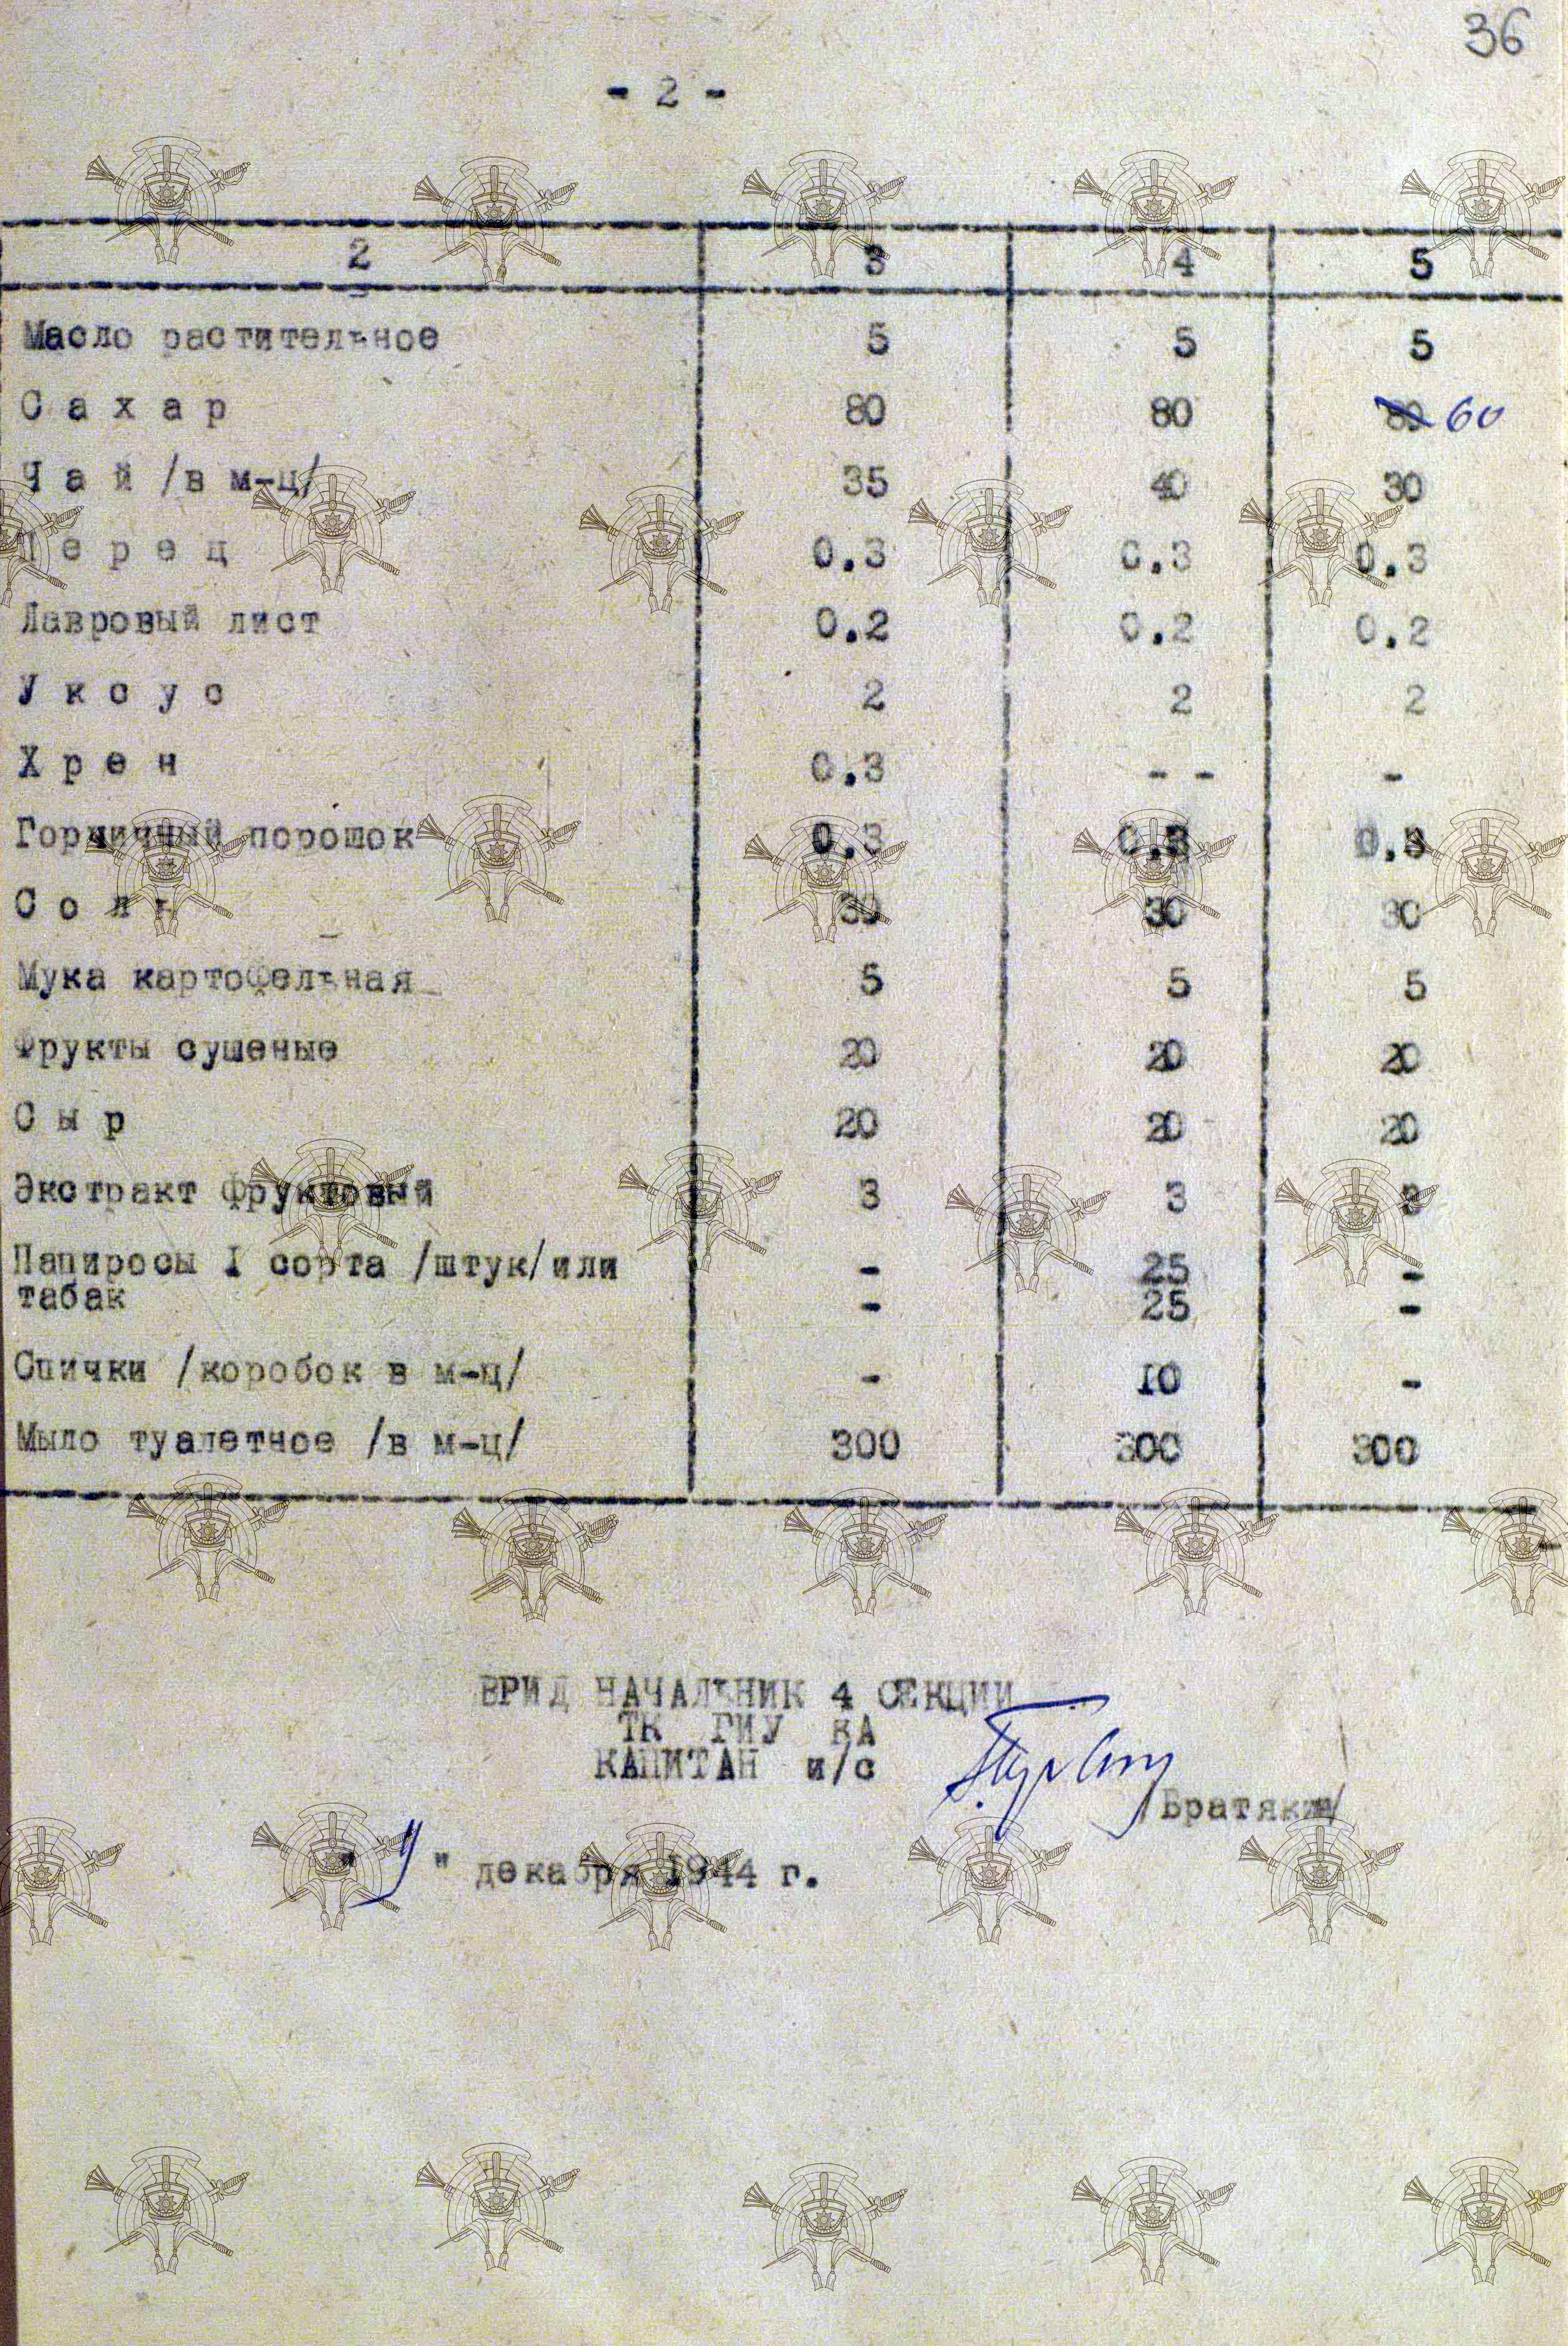 36
- 2 -
2 3 4 5
Масло растительное 5 5 5
С а х а р 80 80 80 60
Ч а й /в м-ц/ 35 40 30
П е р е ц 0.3 0.3 0.3
Лавровый лист 0.2 0.2 0.2
У к с у с 2 2 2
Х р е н 0.3 - - -
Горчичный порошок 0.3 0.3 0.3
С о л ь 30 30 30
Мука картофельная 5 5 5
Фрукты сушеные 20 20 20
С ы р 20 20 20
Экстракт фруктовый 3 3 3
Папиросы I сорта /штук/или - 25 -
табак - 25 -
Спички /коробок в м-ц/ - 10 -
Мыло туалетное /в м-ц/ 300 300 300
ВРИД НАЧАЛЬНИК 4 СЕКЦИИ
ТК ГИУ КА
КАПИТАН и/с
/Братякин/
" " декабря 1944 г.